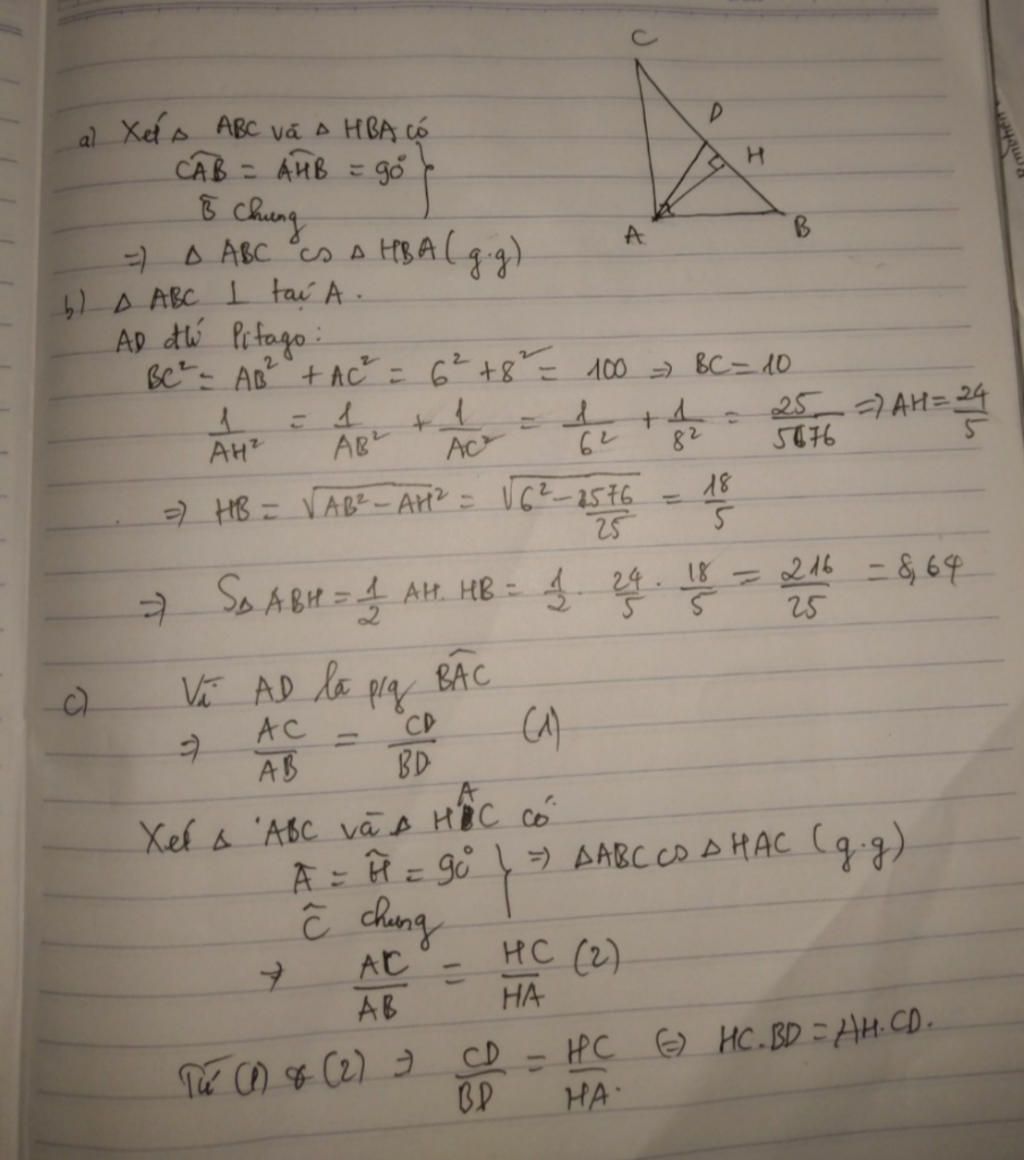 C
D
H
A
B
a) Xét △ ABC và △ HBA có
CÂB = AĤB = 90°
B̂ chung
=> △ ABC ∽ △ HBA (g.g)
b) △ ABC ⊥ tại A.
AD đlí Pitago:
BC² = AB² + AC² = 6² + 8² = 100 => BC = 10
1/AH² = 1/AB² + 1/AC² = 1/6² + 1/8² = 25/576 => AH = 24/5
=> HB = √(AB² − AH²) = √(6² − 576/25) = 18/5
=> S△ ABH = 1/2 AH. HB = 1/2 . 24/5 . 18/5 = 216/25 = 8,64
c) Vì AD là p/g BÂC
=> AC/AB = CD/BD (1)
Xét △ ABC và △ HAC có
Â = Ĥ = 90°
Ĉ chung
=> △ABC ∽ △HAC (g.g)
=> AC/AB = HC/HA (2)
Từ (1) & (2) => CD/BD = HC/HA. <=> HC.BD = AH.CD.